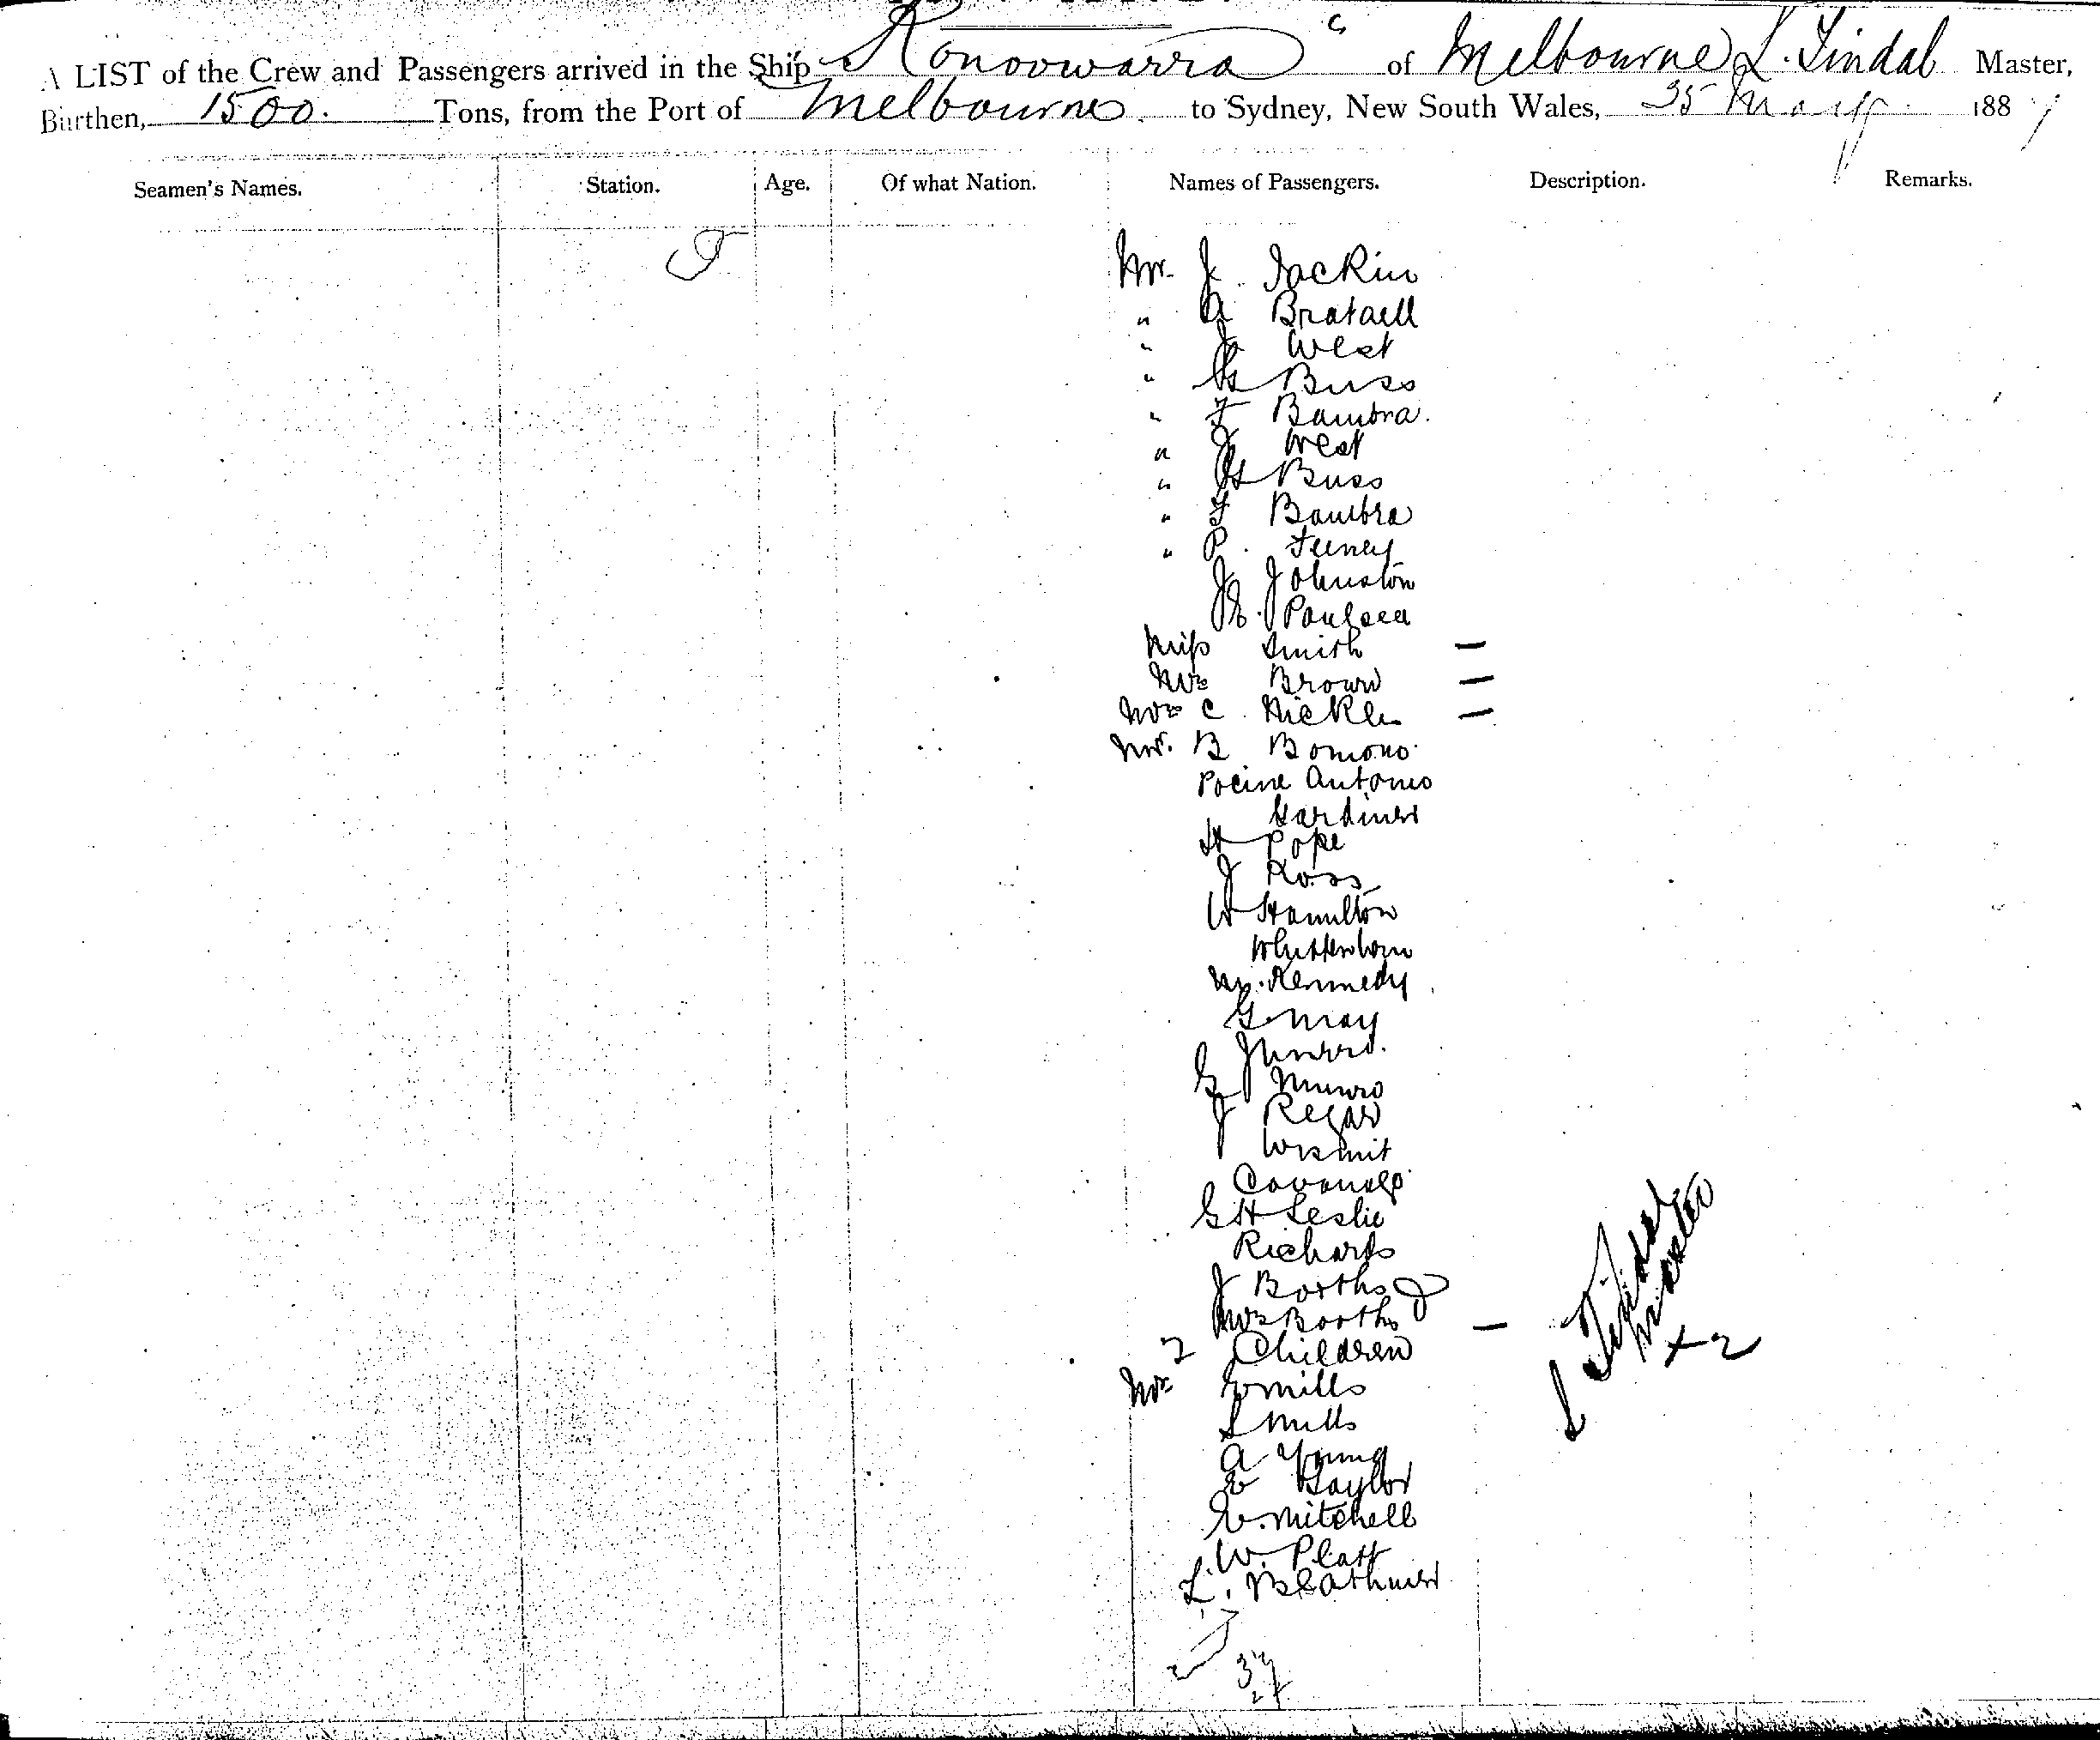 A LIST of the Crew and Passengers arrived in the Ship Konoowarra of Melbourne L. Tindal Master,
Burthen, 1500. Tons, from the Port of Melbourne. to Sydney, New South Wales, 25 May 1887
Seamen's Names. Station. Age. Of what Nation. Names of Passengers. Description. Remarks.
Mr. J. Jackin
" A Brataell
" J West
" H Buss
" F Bambra.
" J West
" H Buss
" F Bambra
" P. Feeney
J Johnston
Paulsen
Miss Smith —
Mrs Brown —
Mrs C. Hickler —
Mr. B Bomono.
Pocine Antonio
Gardiner
H Pope
J Ross
W Hamilton
Whittenbom
M. Kennedy
G. May
J Munro.
G Munro
J Regan
Wismit
Cavanagh
G H Leslie
Richards
J Booths
Mrs Booths —
2 Children
Mr E Mills
S Mills
A Young
E Taylor
E. Mitchell
W. Platt
L. Blathwer
37
2
L Tindal
Master
+ 2